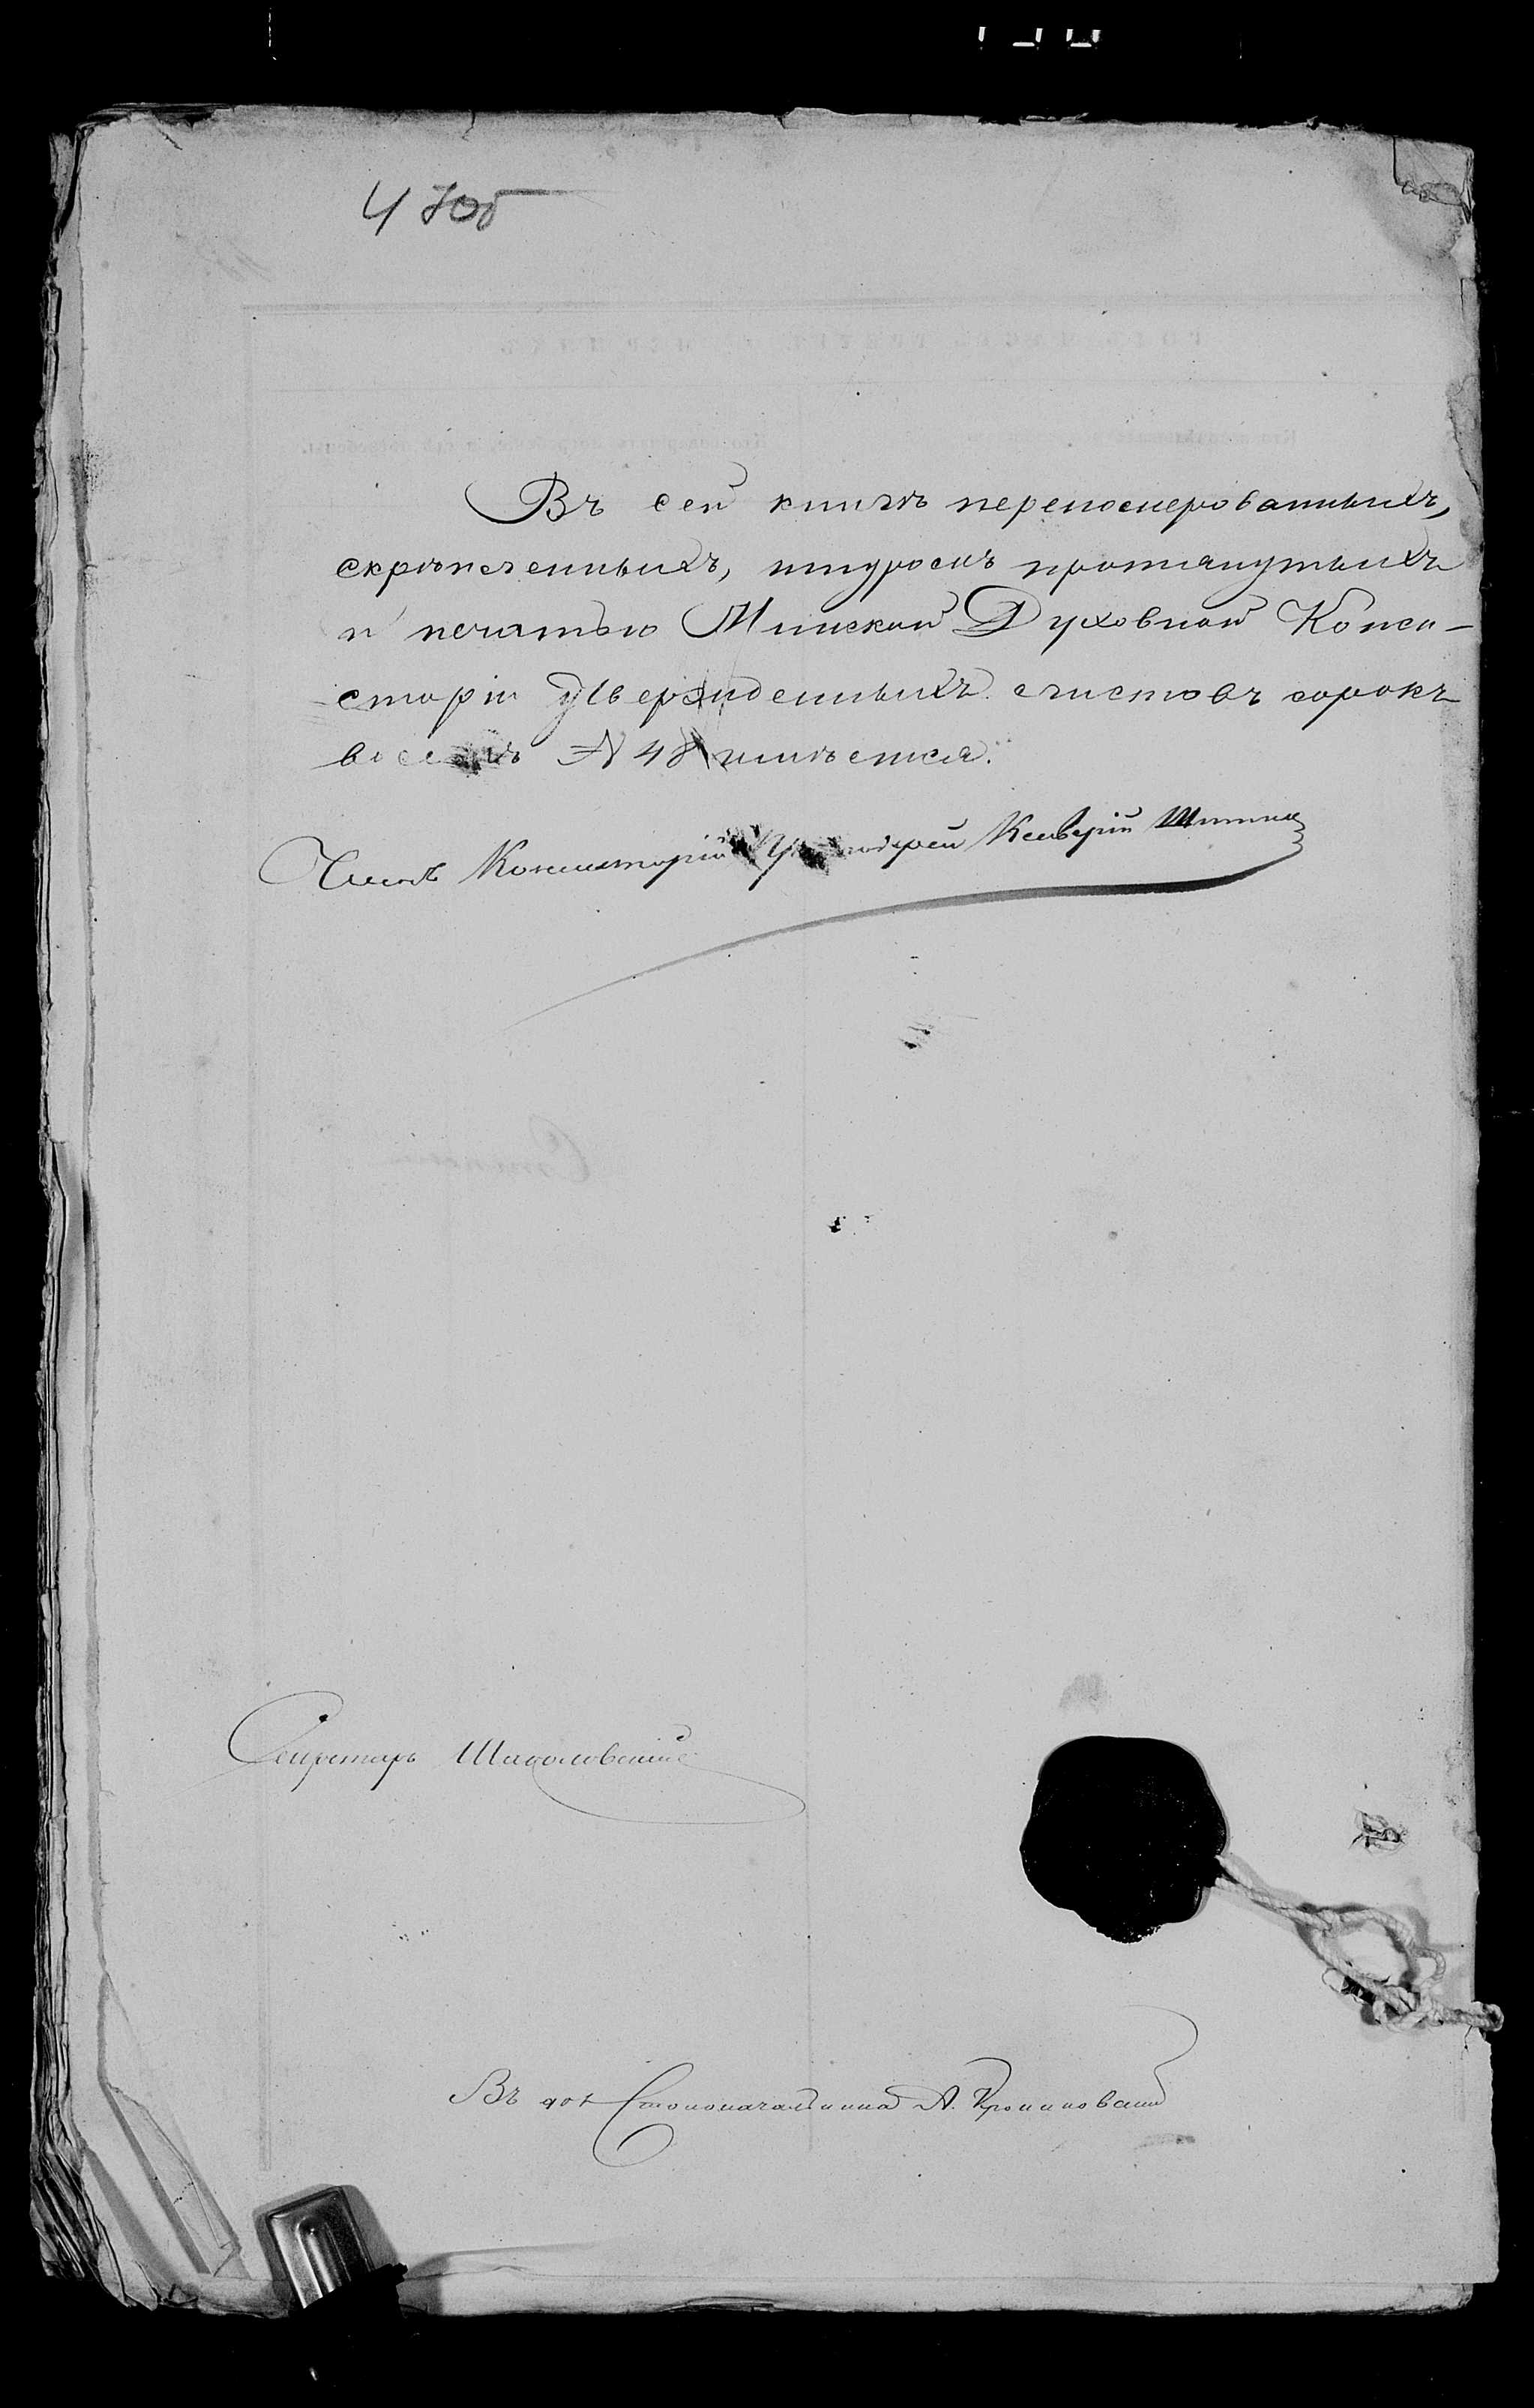 470б
Въ сей книгѣ перенумерованныхъ,
скрѣпленныхъ, шнуромъ протянутыхъ
и печатью Минской Духовной Конси-
сторіи утвержденныхъ листовъ сорокъ
восемь № 48 имѣется.
Членъ Консисторіи Ксаверій
Секретарь
Въ дол. Столоначальника А.